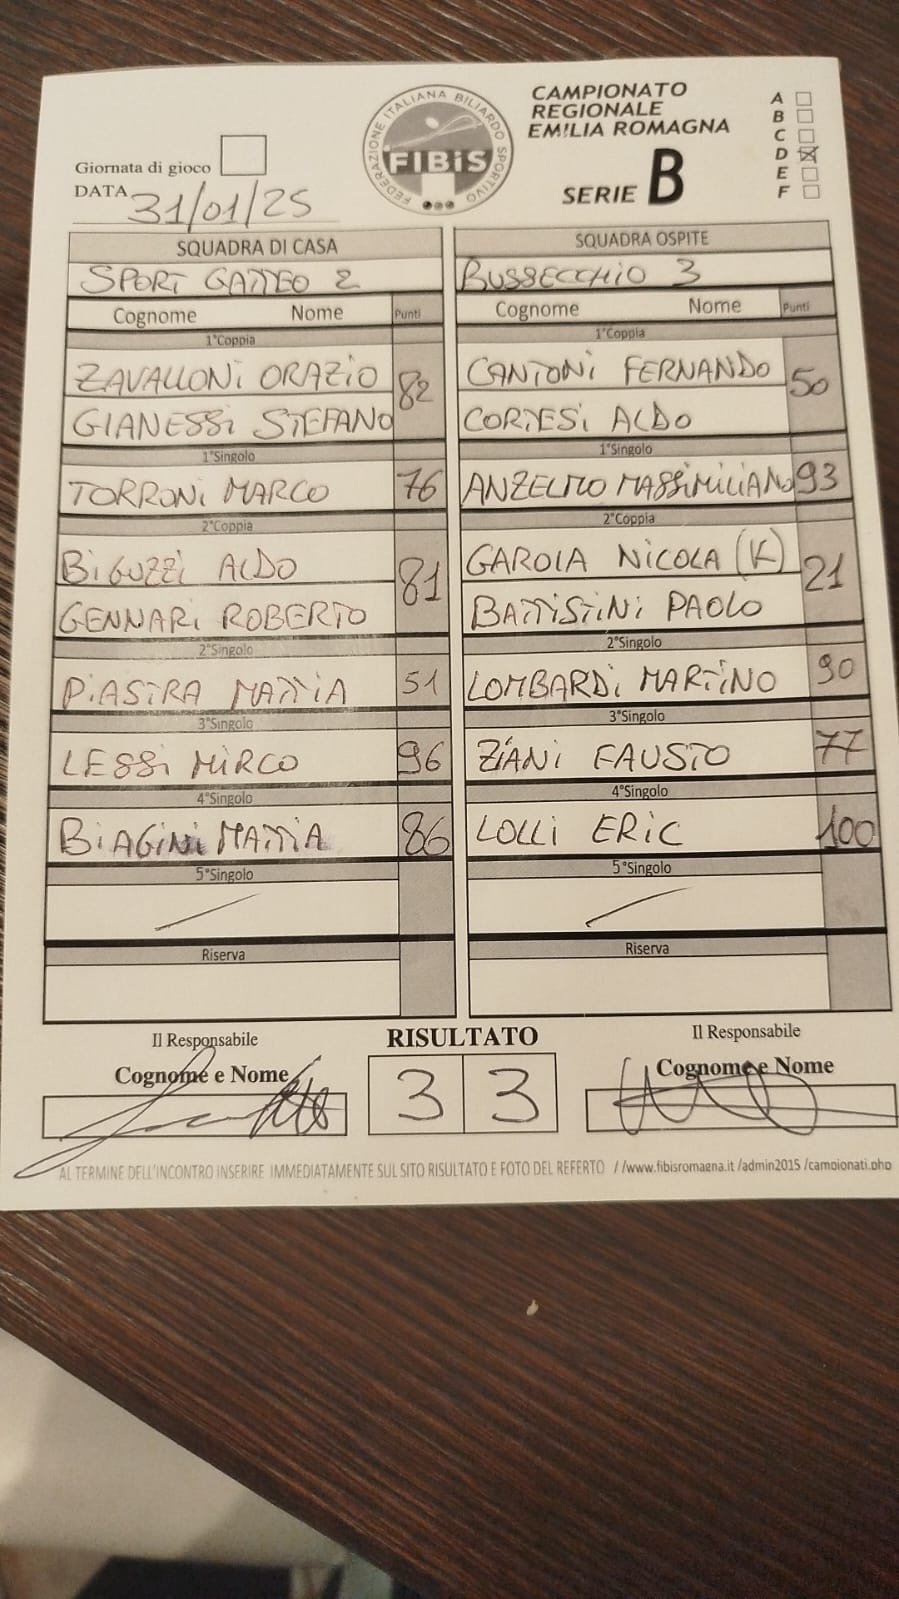 FEDERAZIONE ITALIANA BILIARDO SPORTIVO
FIBiS
CAMPIONATO
REGIONALE
EMILIA ROMAGNA
SERIE B
A
B
C
D
E
F
Giornata di gioco
DATA 31/01/25
SQUADRA DI CASA SQUADRA OSPITE
SPORT GATTEO 2 BUSSECCHIO 3
Cognome Nome Punti Cognome Nome Punti
1°Coppia 1°Coppia
ZAVALLONI ORAZIO 82 CANTONI FERNANDO 50
GIANESSI STEFANO CORTESI ALDO
1°Singolo 1°Singolo
TORRONI MARCO 76 ANZELMO MASSIMILIANO 93
2°Coppia 2°Coppia
BIGUZZI ALDO 81 GAROIA NICOLA (K) 21
GENNARI ROBERTO BATTISTINI PAOLO
2°Singolo 2°Singolo
PIASTRA MATTIA 51 LOMBARDI MARTINO 90
3°Singolo 3°Singolo
LESSI MIRCO 96 ZIANI FAUSTO 77
4°Singolo 4°Singolo
BIAGINI MATTIA 86 LOLLI ERIC 100
5°Singolo 5°Singolo
Riserva Riserva
Il Responsabile RISULTATO Il Responsabile
Cognome e Nome 3 3 Cognome e Nome
AL TERMINE DELL'INCONTRO INSERIRE IMMEDIATAMENTE SUL SITO RISULTATO E FOTO DEL REFERTO //www.fibisromagna.it /admin2015 /campionati.php